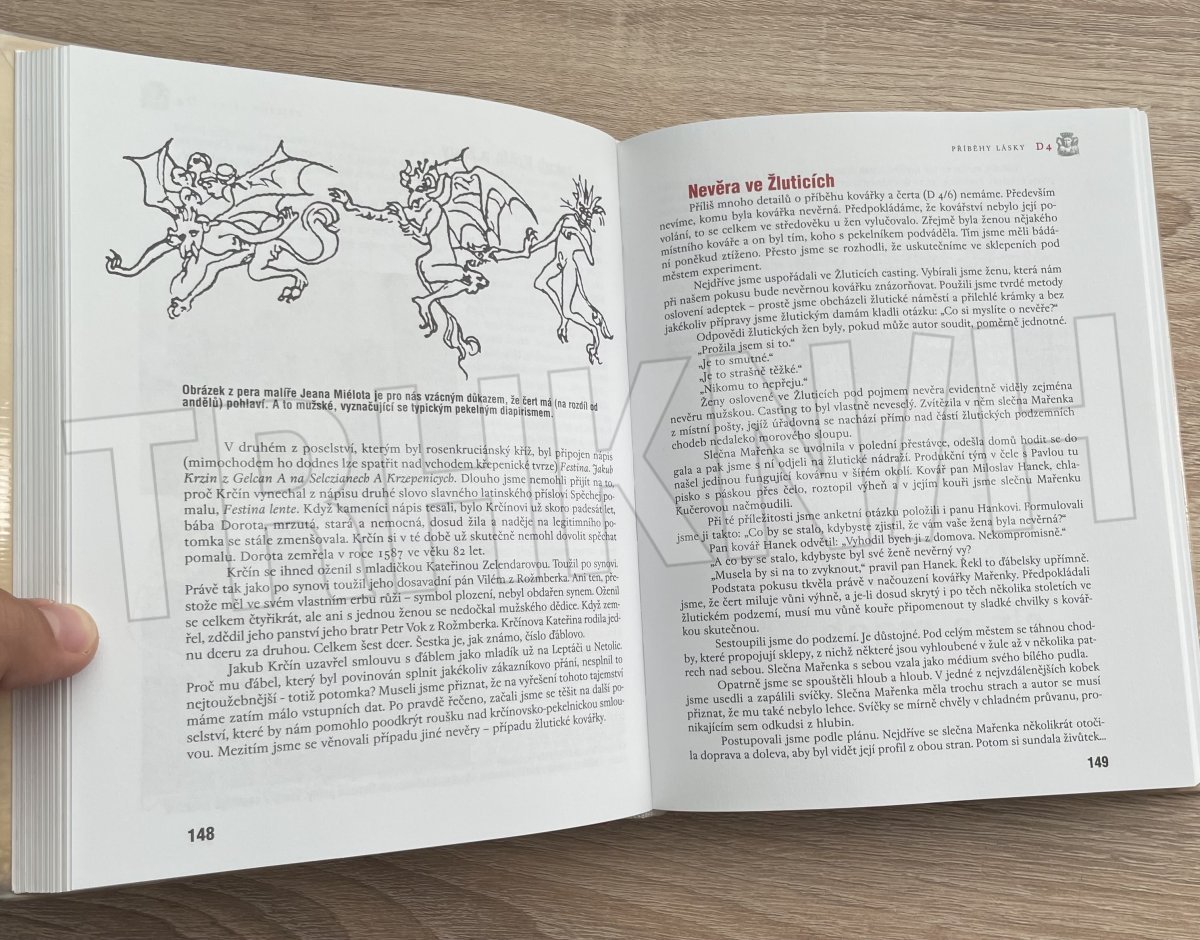 Obrázek z pera malíře Jeana Miélota je pro nás vzácným důkazem, že čert má (na rozdíl od
andělů) pohlaví. A to mužské, vyznačující se typickým pekelným diapirismem.
V druhém z poselství, kterým byl rosenkruciánský kříž, byl připojen nápis
(mimochodem ho dodnes lze spatřit nad vchodem křepenické tvrze) Festina. Jakub
Krzin z Gelcan A na Selezianech A Krzepenicych. Dlouho jsme nemohli přijít na to,
proč Krčín vynechal z nápisu druhé slovo slavného latinského přísloví Spěchej po-
malu, Festina lente. Když kameníci nápis tesali, bylo Krčínovi už skoro padesát let,
bába Dorota, mrzutá, stará a nemocná, dosud žila a naděje na legitimního po-
tomka se stále zmenšovala. Krčín si v té době už skutečně nemohl dovolit spěchat
pomalu. Dorota zemřela v roce 1587 ve věku 82 let.
Krčín se ihned oženil s mladičkou Kateřinou Zelendarovou. Toužil po synovi.
Právě tak jako po synovi toužil jeho dosavadní pán Vilém z Rožmberka. Ani ten, pře-
stože měl ve svém vlastním erbu růži – symbol plození, nebyl obdařen synem. Oženil
se celkem čtyřikrát, ale ani s jednou ženou se nedočkal mužského dědice. Když zem-
řel, zdědil jeho panství jeho bratr Petr Vok z Rožmberka. Krčínova Kateřina rodila jed-
nu dceru za druhou. Celkem šest dcer. Šestka je, jak známo, číslo ďáblovo.
Jakub Krčín uzavřel smlouvu s ďáblem jako mladík už na Leptáči u Netolic.
Proč mu ďábel, který byl povinován splnit jakékoliv zákazníkovo přání, nesplnil to
nejtouženbnější - totiž potomka? Museli jsme přiznat, že na vyřešení tohoto tajemství
máme zatím málo vstupních dat. Po pravdě řečeno, začali jsme se těšit na další po-
selství, které by nám pomohlo poodkrýt roušku nad krčínovsko-pekelnickou smlou-
vou. Mezitím jsme se věnovali případu jiné nevěry – případu žlutické kovářky.
148
PŘÍBĚHY LÁSKY D4
Nevěra ve Žluticích
Příliš mnoho detailů o příběhu kovářky a čerta (D 4/6) nemáme. Především
nevíme, komu byla kovářka nevěrná. Předpokládáme, že kovářství nebylo její po-
volání, to se celkem ve středověku u žen vylučovalo. Zřejmě byla ženou nějakého
místního kováře a on byl tím, koho s pekelníkem podváděla. Tím jsme měli bádá-
ní poněkud ztíženo. Přesto jsme se rozhodli, že uskutečníme ve sklepeních pod
městem experiment.
Nejdříve jsme uspořádali ve Žluticích casting. Vybírali jsme ženu, která nám
při našem pokusu bude nevěrnou kovářku znázorňovat. Použili jsme tvrdé metody
oslovení adeptek – prostě jsme obcházeli žlutické náměstí a přilehlé krámky a bez
jakékoliv přípravy jsme žlutickým dámám kladli otázku: „Co si myslíte o nevěře?“
Odpovědi žlutických žen byly, pokud může autor soudit, poměrně jednotné.
„Prožila jsem si to.“
„Je to smutné.“
„Je to strašně těžké.“
„Nikomu to nepřeju.“
Ženy oslovené ve Žluticích pod pojmem nevěra evidentně viděly zejména
nevěru mužskou. Casting to byl vlastně neveselý. Zvítězila v něm slečna Mařenka
z místní pošty, jejíž úřadovna se nachází přímo nad částí žlutických podzemních
chodeb nedaleko morového sloupu.
Slečna Mařenka se uvolnila v polední přestávce, odešla domů hodit se do
gala a pak jsme s ní odjeli na žlutické nádraží. Produkční tým v čele s Pavlou tu
našel jedinou fungující kovárnu v šírém okolí. Kovář pan Miloslav Hanek, chla-
pisko s páskou přes čelo, roztopil výheň a v jejím kouři jsme slečnu Mařenku
Kučerovou načmoudili.
Při té příležitosti jsme anketní otázku položili i panu Hankovi. Formulovali
jsme ji takto: „Co by se stalo, kdybyste zjistil, že vám vaše žena byla nevěrná?“
Pan kovář Hanek odvětil: „Vyhodil bych ji z domova. Nekompromisně.“
„A co by se stalo, kdybyste byl své ženě nevěrný vy?
„Musela by si na to zvyknout,“ pravil pan Hanek. Řekl to ďábelsky upřímně.
Podstata pokusu tkvěla právě v načouzení kovářky Mařenky. Předpokládali
jsme, že čert miluje vůni výhně, a je-li dosud skrytý i po těch několika stoletích ve
žlutickém podzemí, musí mu vůně kouře připomenout ty sladké chvilky s kovář-
kou skutečnou.
Sestoupili jsme do podzemí. Je důstojné. Pod celým městem se táhnou chod-
by, které propojují sklepy, z nichž některé jsou vyhloubené v žule až v několika pat-
rech nad sebou. Slečna Mařenka s sebou vzala jako médium svého bílého pudla.
Opatrně jsme se spouštěli hloub a hloub. V jedné z nejvzdálenějších kobek
jsme usedli a zapálili svíčky. Slečna Mařenka měla trochu strach a autor se musí
přiznat, že mu také nebylo lehce. Svíčky se mírně chvěly v chladném průvanu, pro-
nikajícím sem odkudsi z hlubin.
Postupovali jsme podle plánu. Nejdříve se slečna Mařenka několikrát otoči-
la doprava a doleva, aby byl vidět její profil z obou stran. Potom si sundala živůtek...
149
TRHKNIH